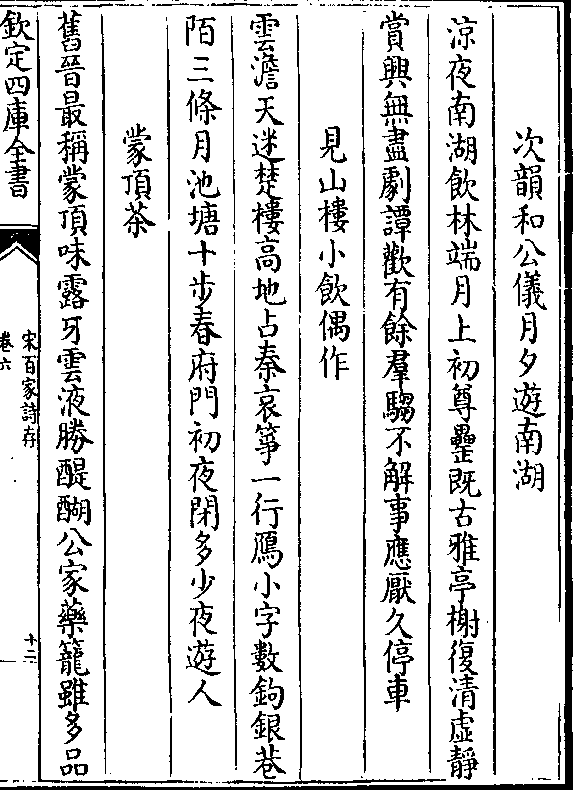 次韻和公儀月夕遊南湖
涼夜南湖飲林端月上初尊罍既古雅亭榭復清虛靜
賞興無盡劇譚歡有餘羣騶不解事應厭久停車
見山樓小飲偶作
雲澹天迷楚樓高地占秦哀箏一行鴈小字數鉤銀巷
陌三條月池塘十步春府門初夜閉多少夜遊人
蒙頂茶
舊晉最稱蒙頂味露牙雲液勝醍醐公家藥籠雖多品
欽定四庫全書
宋百家詩存
卷六
十二